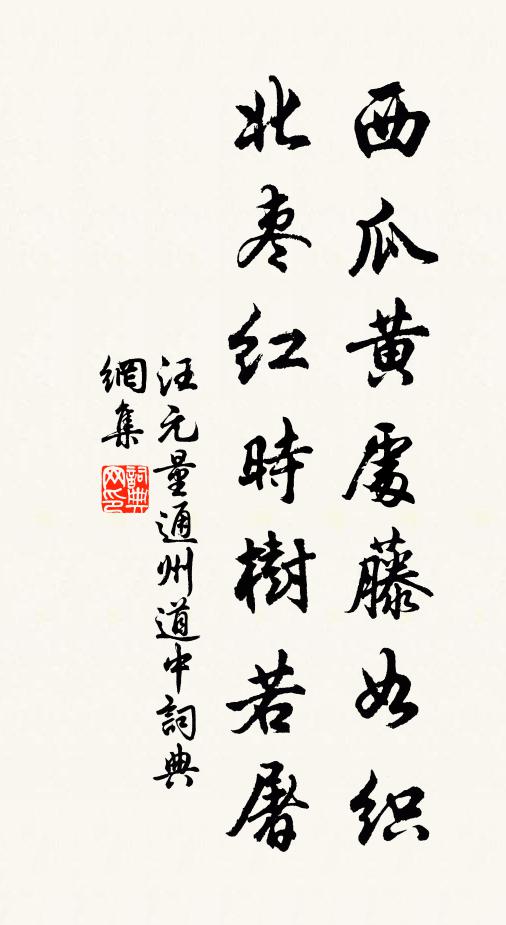 西瓜黄處藤如织
北枣红時樹若屠
汪元量通州道中詞典
網集
詞典网印